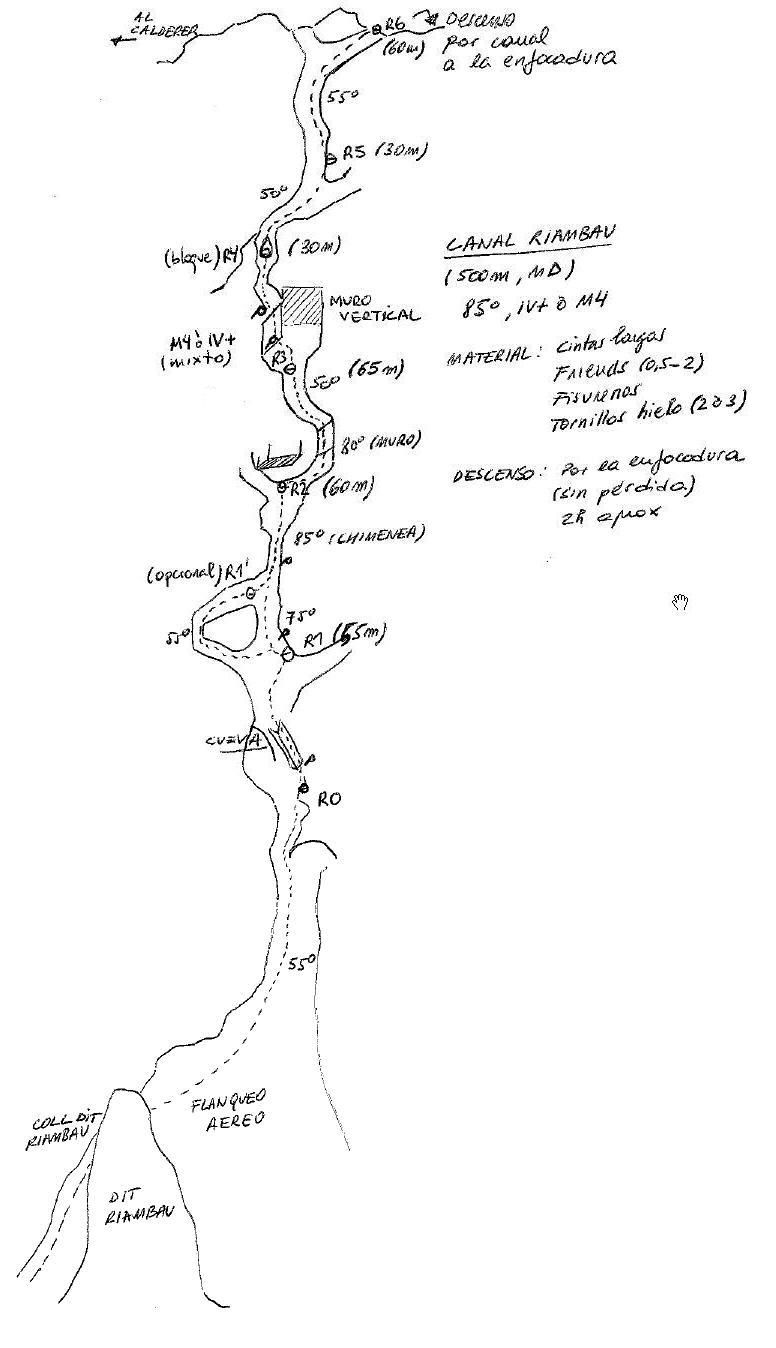 AL
CALDERER
R6
(60m)
DESCENSO
por canal
a la enfocadura
55º
R5 (30m)
50º
(bloque) R4
(30m)
CANAL RIAMBAU
(500m, MD)
85º, IV+ ò M4
MURO
VERTICAL
M4 ò IV+
(mixto)
R3
50º
(65m)
MATERIAL: Cintas largas
Friends (0,5-2)
Fisureros
Tornillos hielo (2 ò 3)
80º (MURO)
R2 (60m)
DESCENSO: Por la enfocadura
(sin pérdida)
2h aprox
85º (CHIMENEA)
(opcional) R1'
75º
55º
R1 (55m)
CUEVA
R0
55º
FLANQUEO
AEREO
COLL DIT
RIAMBAU
DIT
RIAMBAU